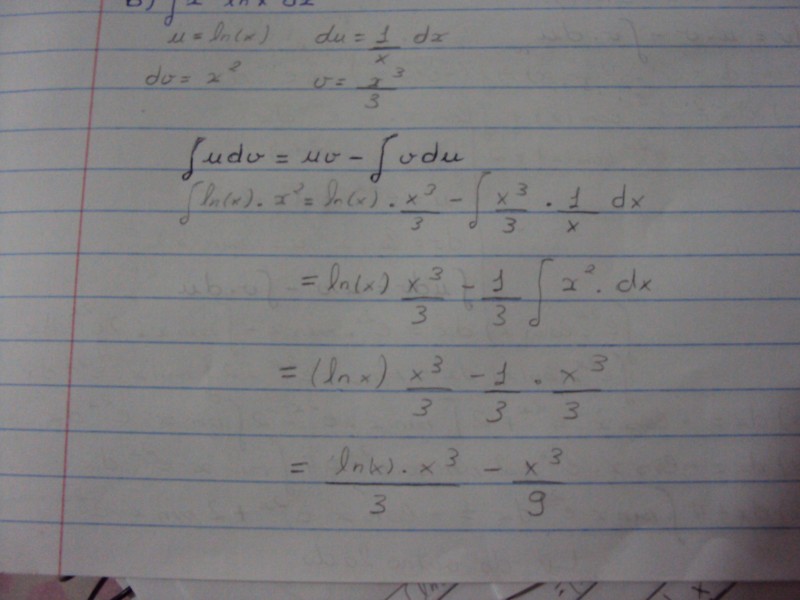 B) ∫x² lnx dx
u = ln(x) du = 1/x dx
dv = x² v = x³/3
∫udv = uv - ∫vdu
∫ln(x) · x² = ln(x) · x³/3 - ∫ x³/3 · 1/x dx
= ln(x) x³/3 - 1/3 ∫ x² · dx
= (lnx) x³/3 - 1/3 · x³/3
= ln(x) · x³/3 - x³/9